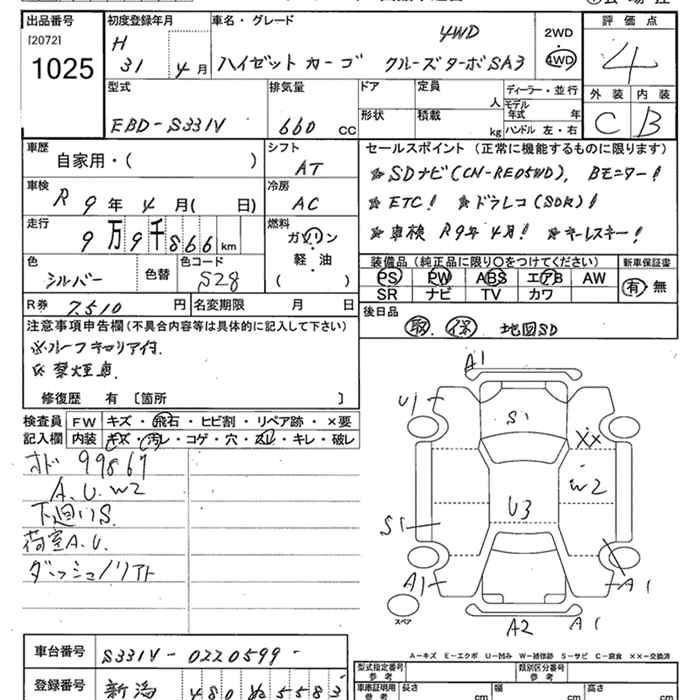 出品番号 初度登録年月 車名・グレード 評価点
[2072] H 4WD 2WD
1025 31 年 4月 ハイゼットカーゴ クルーズターボSA3 4WD 4
型式 排気量 ドア 定員 人 ディーラー・並行 外装 内装
EBD-S331V 660 CC 形状 積載 kg モデル年式 年 C B
ハンドル 左・右
車歴 自家用・( ) シフト AT セールスポイント (正常に機能するものに限ります)
☆SDナビ(CN-RE05WD), Bモニター!
車検 R9年4月( 日) 冷房 AC ☆ETC! ☆ドラレコ(SDR)!
走行 9万9千866km 燃料 ガソリン 軽・油 ( ) ☆車検R9年4月! ☆キーレスキー!
色 シルバー 色替 色コード S28 装備品(純正品に限り○をつけてください) 新車保証書
PS PW ABS エアB AW 有・無
SR ナビ TV カワ
R券 7,510円 名変期限 月 日 後日品
取. 保. 地図SD
注意事項申告欄(不具合内容等は具体的に記入して下さい)
※ルーフキャリア付.
※禁煙車
修復歴 有〔箇所 〕
検査員 FW キズ・飛石・ヒビ割・リペア跡・×要
記入欄 内装 キズ・汚レ・コゲ・穴・スレ・キレ・破レ
オド 99867
A.U.W2
下廻りS.
荷室A.U.
ダッシュノリアト
A1
U1 S1 XX
W2
U3
S1
A1 A1
スペア A2 A1
A-キズ E-エクボ U-凹み W-補修跡 S-サビ C-腐食 ××-交換済
車台番号 S331V-0220599 型式指定番号 参考 類別区分番号 参考
登録番号 新潟 480 車庫証明用 参考 長さ cm 幅 cm 高さ cm